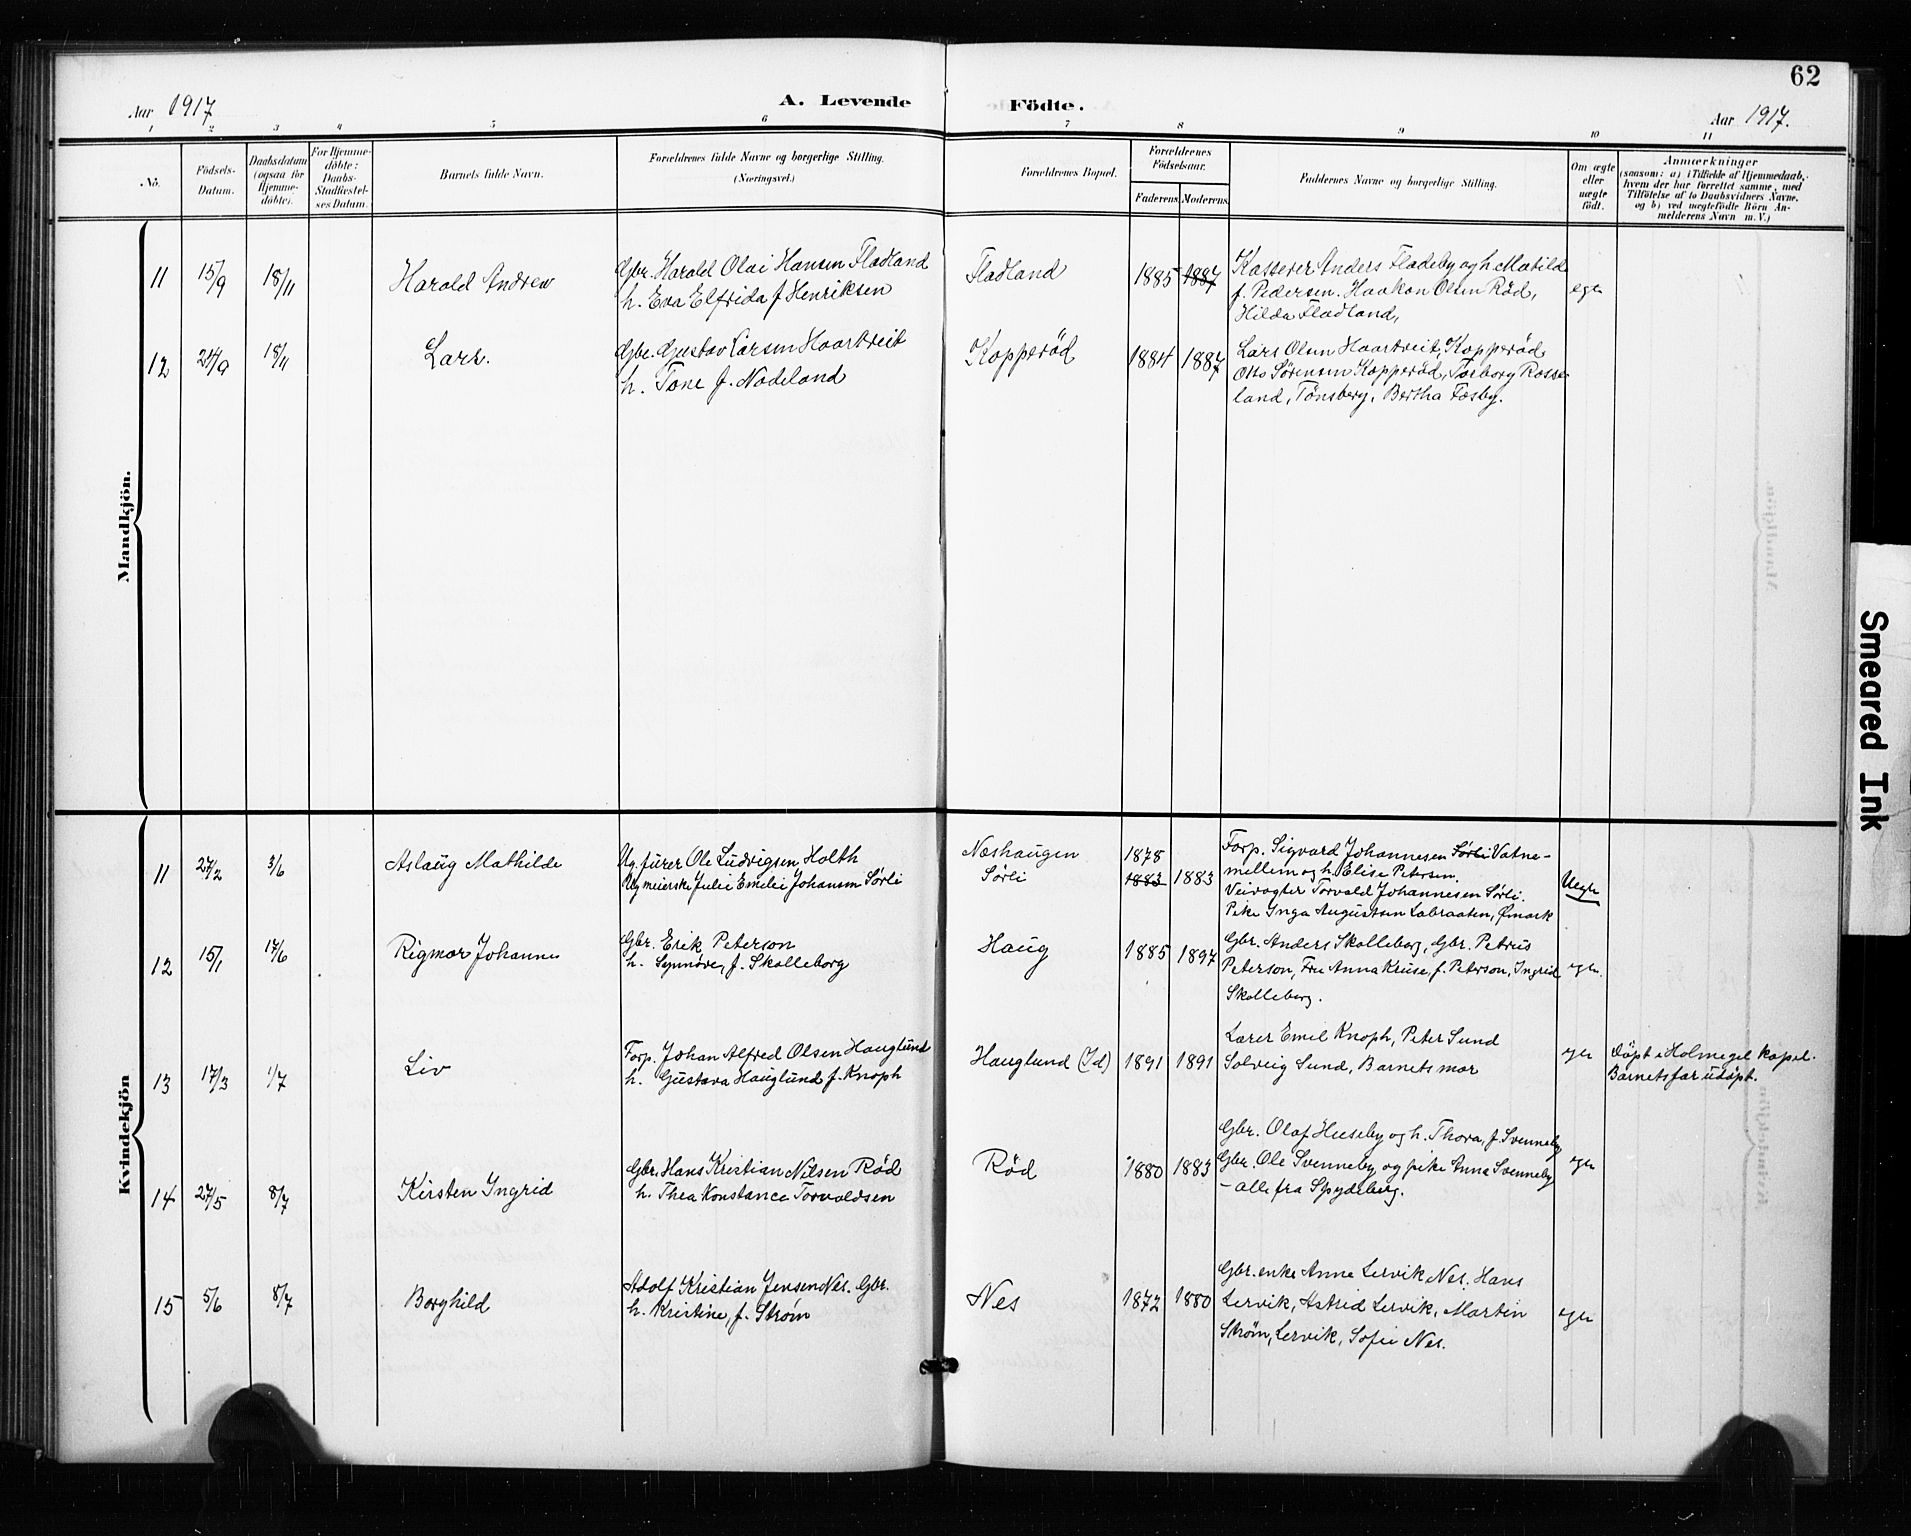 62
Aar 1917
A. Levende Födte.
Aar 1917.
1 2 3 4 5 6 7 8 9 10 11
No.
Födsels-
Datum.
Daabsdatum
(ogsaa for
Hjemme-
döbte).
For Hjemme-
döbte:
Daabs-
Stadfæstel-
ses Datum.
Barnets fulde Navn.
Forældrenes fulde Navne og borgerlige Stilling.
(Næringsvei.)
Forældrenes Bopæl.
Forældrenes
Födselsaar.
Faderens. Moderens.
Faddernes Navne og borgerlige Stilling.
Om ægte
eller
uægte
födt.
Anmærkninger
(saasom: a) i Tilfælde af Hjemmedaab,
hvem der har forrettet samme, med
Tilföielse af to Daabsvidners Navne,
og b) ved uægtefödte Börn An-
melderens Navn m. V.)
Mandkjön.
11 15/9 18/11 Harald Andrew
Gbr. Harald Olai Hansen Fladland
h. Eva Elfrida f Henriksen
Fladland 1885 1887
Kasserer Anders Fladeby og h. Matilde
f. Pedersen. Haakon Olsen Röd,
Hilda Fladland,
egte
12 24/9 18/11 Lars.
Gbr. Gustav Larsen Haartveit
h. Tone f. Nadeland
Kopperød 1884 1887
Lars Olsen Haartveit, Kopperød
Otto Sørensen Kopperød, Torborg Rosse-
land, Tønsberg, Bertha Fosby.
Kvindekjön
11 27/2 3/6 Aslaug Mathilde
Ug. furer Ole Ludvigsen Holth
Ug meierske Julie Emilie Johansen Sørli
Neshaugen
Sørli
1878
1883 1883
Forp. Sigvard Johannesen Sørli Vatne-
mellem og h. Elise Petersen.
Veivogter Torvald Johannesen Sørli.
Pike Inga Augustsen Labraaten, Ømark
Uegte
12 15/1 17/6 Rigmor Johanne
Gbr. Erik Peterson
h. Synnöve, f. Skolleborg
Haug 1885 1897
Gbr. Anders Skolleborg, Gbr. Petrus
Peterson, Fru Anna Kruse, f. Peterson, Ingrid
Skolleborg.
egte.
13 17/3 1/7 Liv
Forp. Johan Alfred Olsen Hauglund
h. Gustava Hauglund f. Knoph
Hauglund (Id) 1891 1891
Lærer Emil Knoph, Peter Sund
Solveig Sund, Barnets mor
egte
Döpt i Holmegil kapel.
Barnets far udöpt.
14 27/5 8/7 Kirsten Ingrid
Gbr. Hans Kristian Nilsen Röd
h. Thea Konstance Torvaldsen
Röd 1880 1883
Gbr. Olaf Huseby og h. Thora, f. Svenneby
Gbr. Ole Svenneby og pike Anna Svenneby
- alle fra Spydeberg.
egte
15 5/6 8/7 Borghild
Adolf Kristian Jensen Nes. Gbr.
h. Kristine, f. Strøm
Nes 1872 1880
Gbr.enke Anne Lervik Nes. Hans
Lervik, Astrid Lervik, Martin
Strøm, Lervik, Sofie Nes.
egte
Smeared Ink